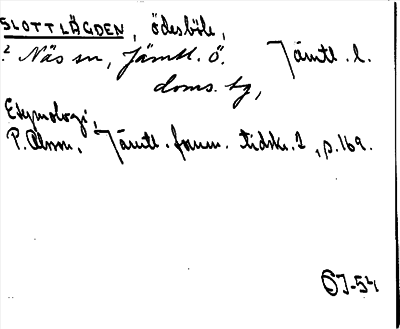 SLOTTLÄGDEN, ödesböle,
? Näs sn, Jämtl. Ö. Jämtl. l.
doms. tg,
Etymologi,
P. Olsson, Jämtl. fornm. tidskr. 2, p. 169.
ÖJ-54